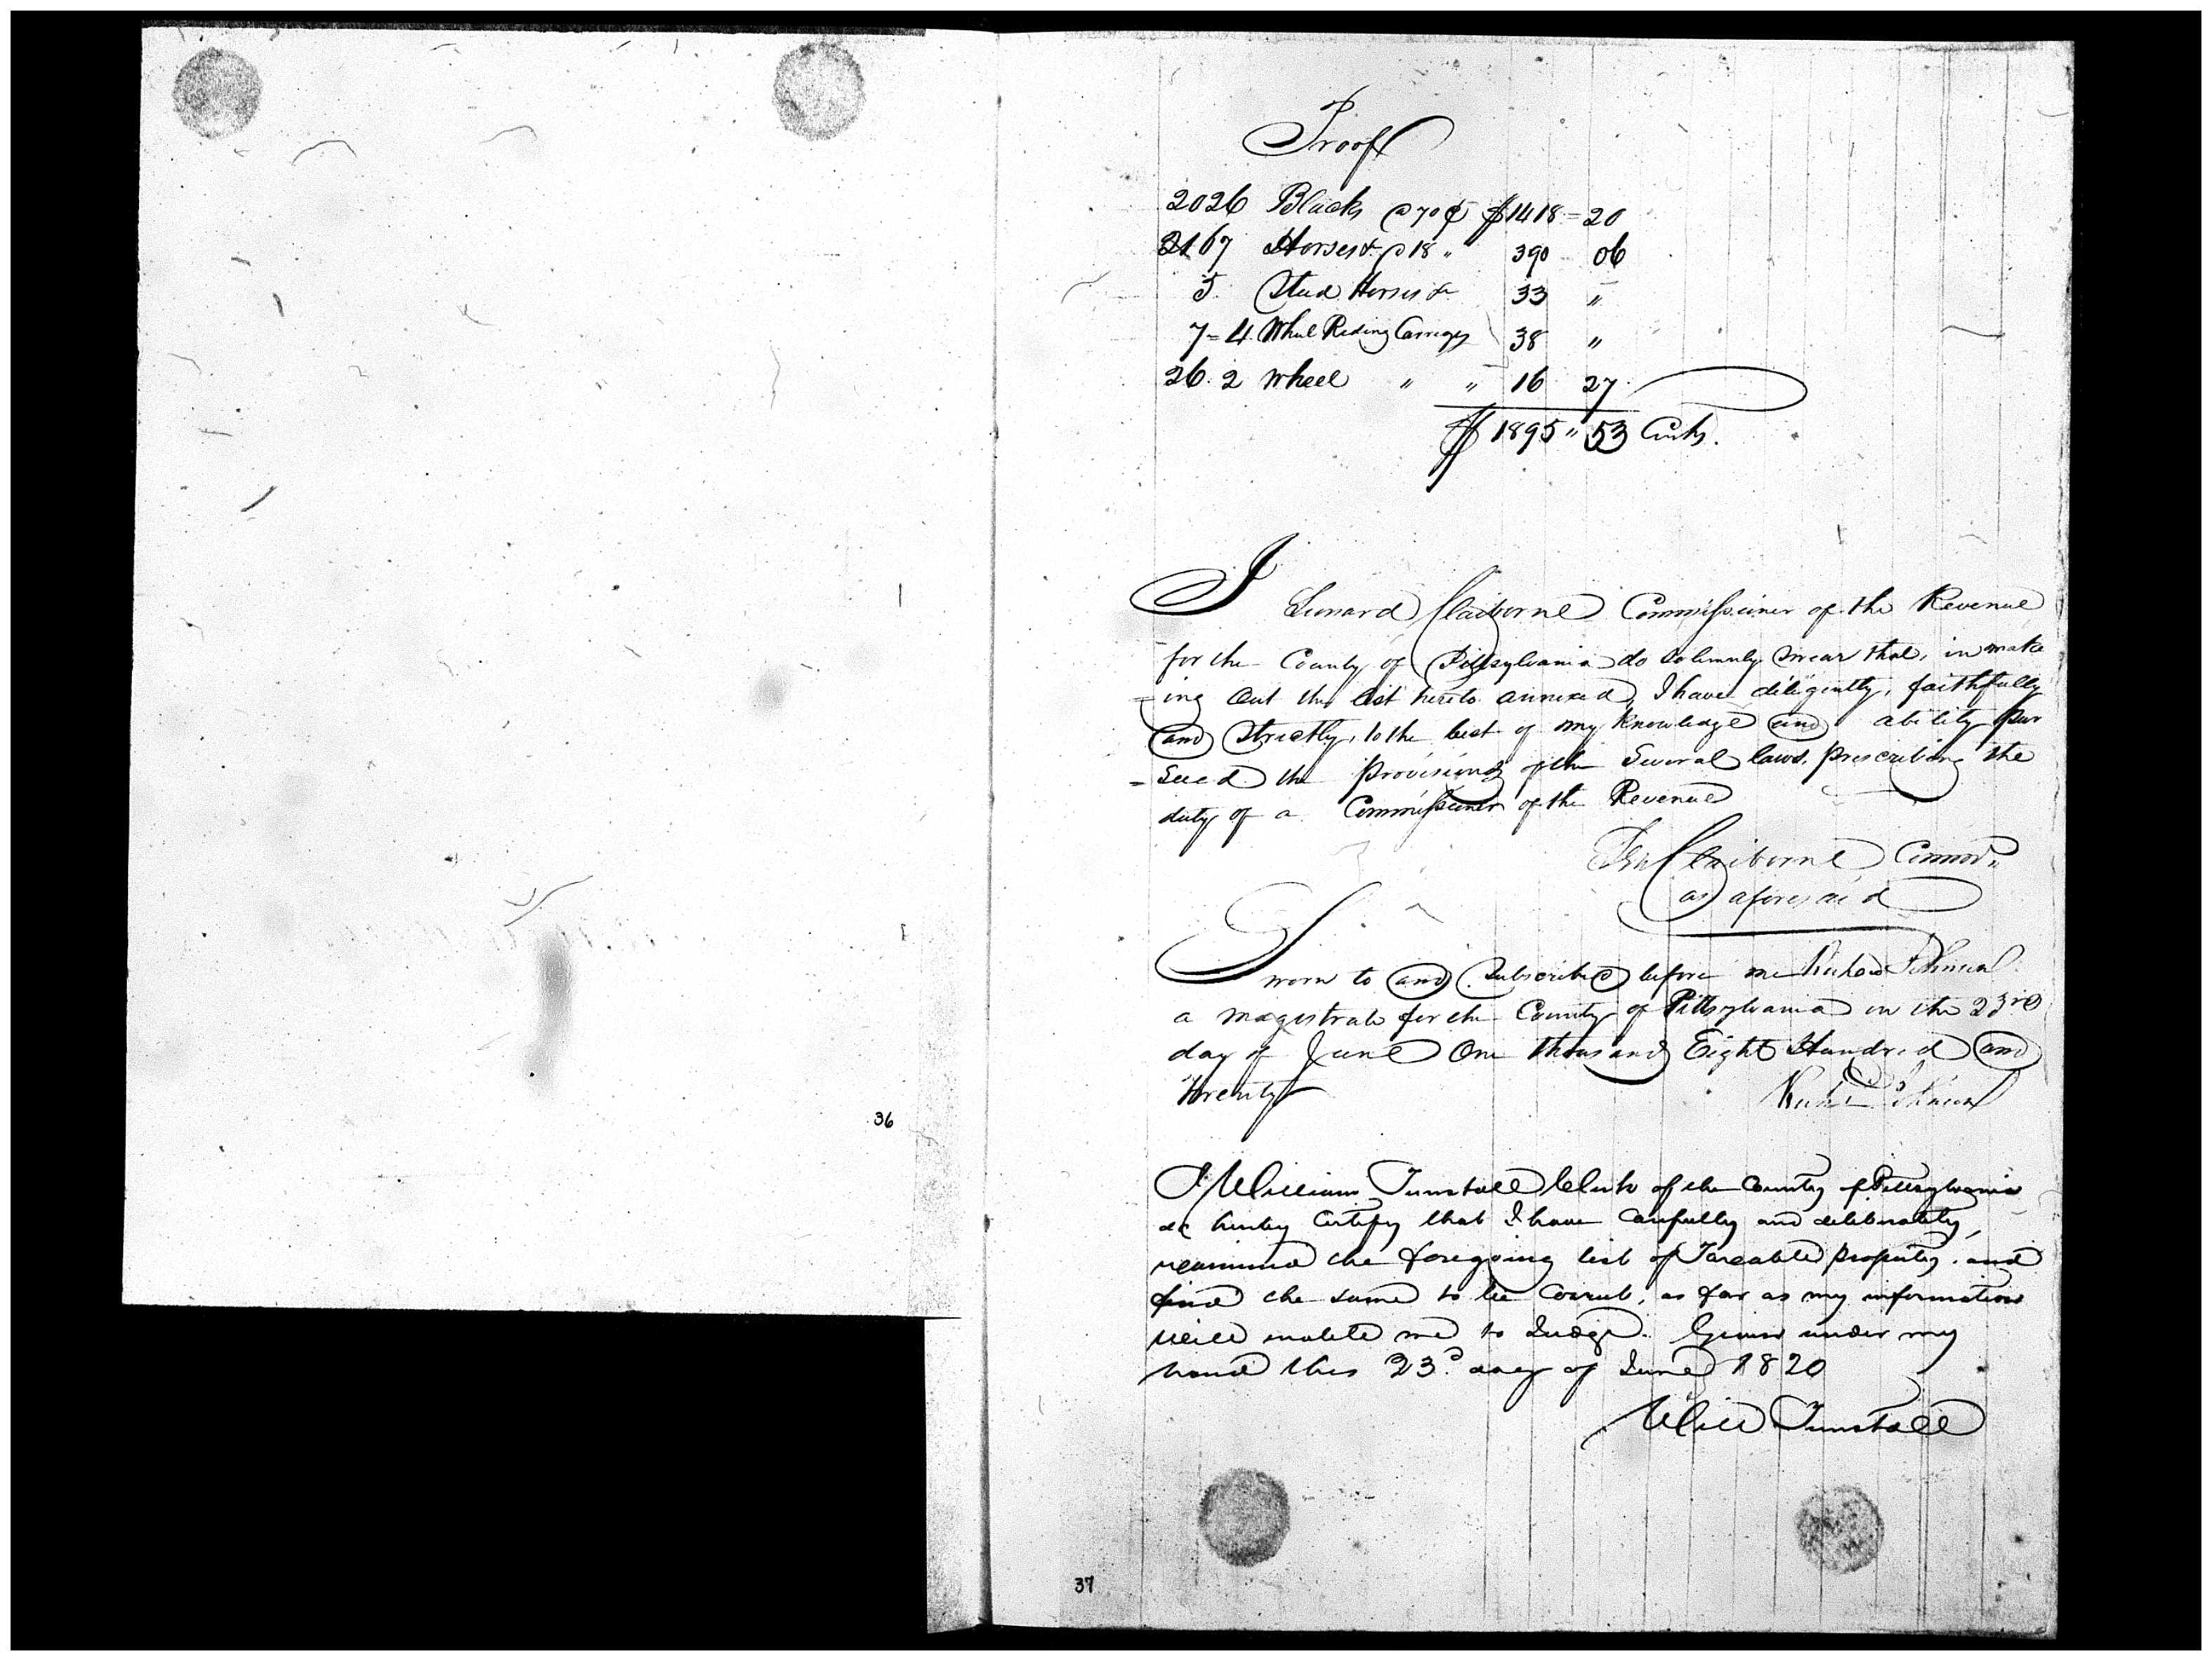 36
Proof
2026 Blacks @ 70 ¢ $1418 = 20
2167 Horses &c @ 18 " 390 06
5. Stud Horses &c 33 "
7 = 4 Wheel Riding Carriages 38 "
26. 2 Wheel " " 16 27
$ 1895 " 53 Cents.
I Leonard Claiborne Commissioner of the Revenue
for the County of Pittsylvania do solemnly swear that, in mak
=ing out the list hereto annexed, I have diligently, faithfully
and strictly, to the best of my knowledge and ability pur
=sued the provisions of the Several laws, prescribing the
duty of a Commissioner of the Revenue
Claiborne Commr.
as aforesaid
Sworn to and Subscribed before me Johnson
a magistrate for the County of Pittsylvania on the 23rd
day of June One thousand Eight Hundred and
Twenty
Johnson
I William Tunstall Clerk of the County of Pittsylvania
do hereby Certify that I have Carefully and deliberately,
reexamined the foregoing list of Taxable property. and
find the same to be Correct, as far as my information
will enable me to Judge. Given under my
hand this 23d day of June 1820
Will Tunstall
37